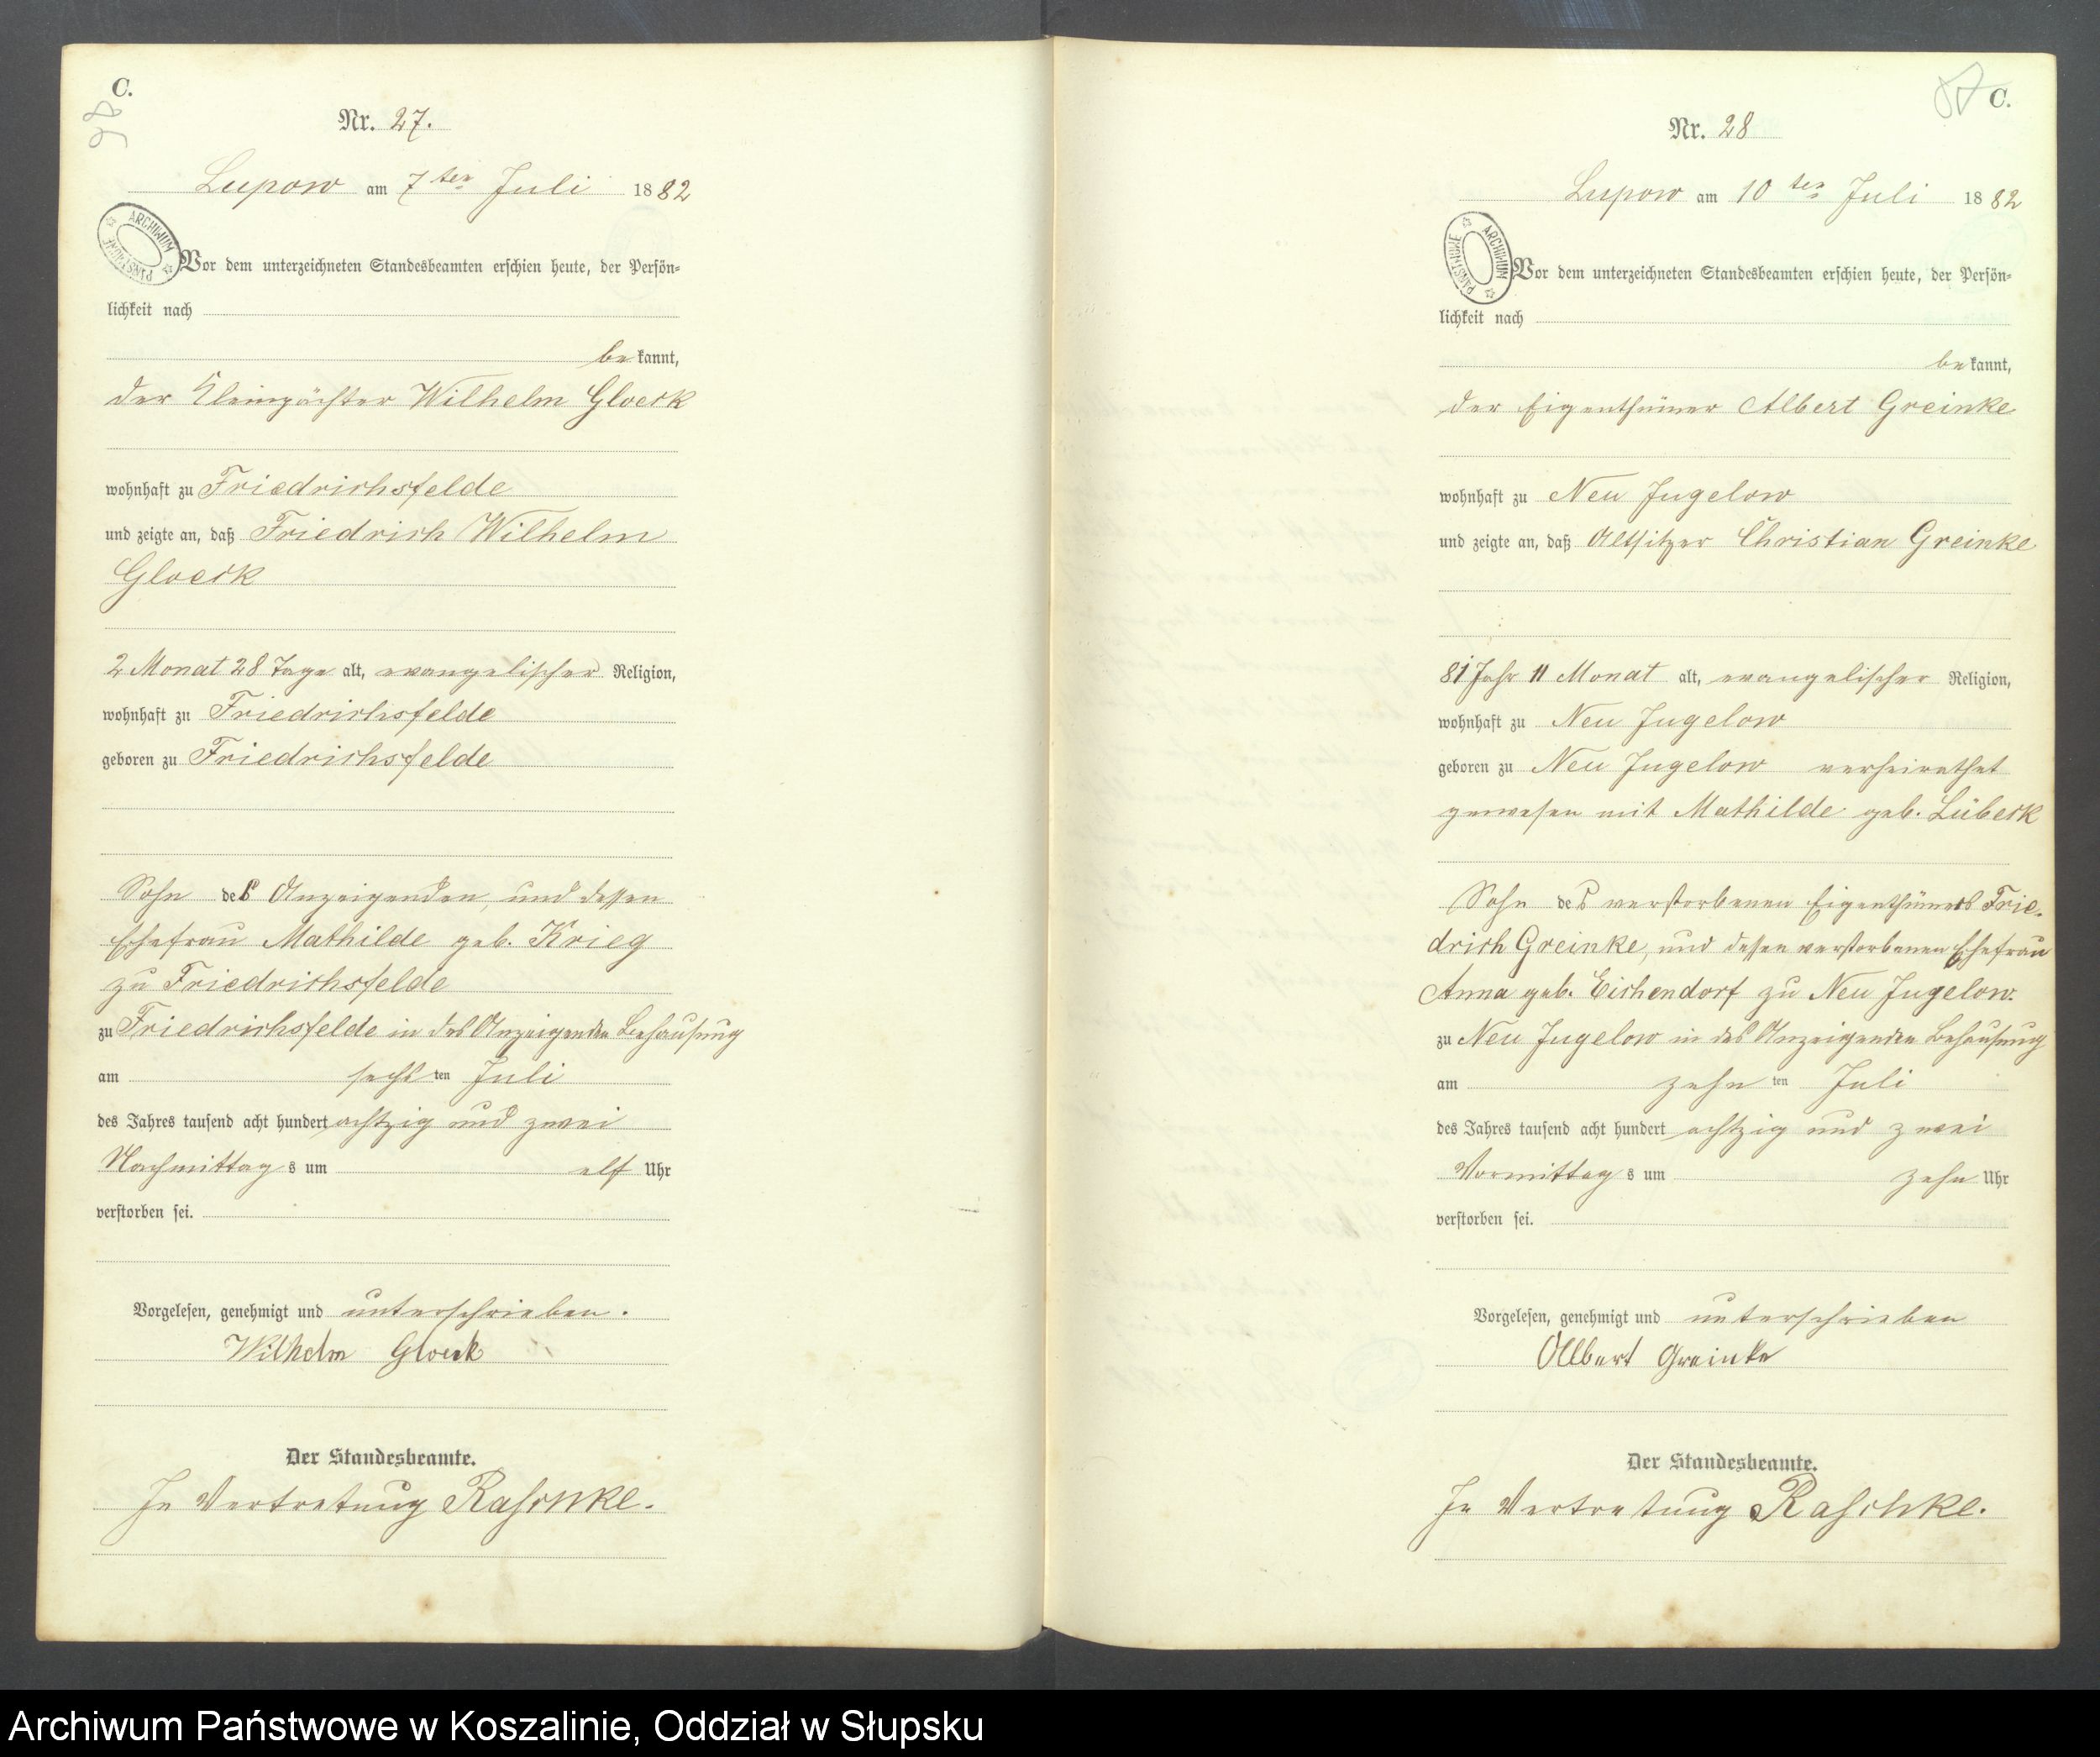 C.
Nr. 27.
Lupow am 7ten Juli 1882
ARCHIWUM PAŃSTWOWE
Vor dem unterzeichneten Standesbeamten erschien heute, der Persön-
lichkeit nach
bekannt,
der Kleinpächter Wilhelm Gloeck
wohnhaft zu Friedrichsfelde
und zeigte an, daß Friedrich Wilhelm
Gloeck
2 Monat 28 Tage alt, evangelischer Religion,
wohnhaft zu Friedrichsfelde
geboren zu Friedrichsfelde
Sohn des Anzeigenden, und dessen
Ehefrau Mathilde geb. Krieg
zu Friedrichsfelde
zu Friedrichsfelde in des Anzeigenden Behausung
am sechsten Juli
des Jahres tausend acht hundert achtzig und zwei
Nachmittags um elf Uhr
verstorben sei.
Vorgelesen, genehmigt und unterschrieben.
Wilhelm Gloeck
Der Standesbeamte.
In Vertretung Raschke.
87 C.
Nr. 28
Lupow am 10ten Juli 1882
ARCHIWUM PAŃSTWOWE
Vor dem unterzeichneten Standesbeamten erschien heute, der Persön-
lichkeit nach
bekannt,
der Eigenthümer Albert Greinke
wohnhaft zu Neu Jugelow
und zeigte an, daß Altsitzer Christian Greinke
81 Jahr 11 Monat alt, evangelischer Religion,
wohnhaft zu Neu Jugelow
geboren zu Neu Jugelow verheirathet
gewesen mit Mathilde geb. Lübeck
Sohn des verstorbenen Eigenthümers Frie-
drich Greinke, und dessen verstorbenen Ehefrau
Anna geb. Eichendorf zu Neu Jugelow.
zu Neu Jugelow in des Anzeigenden Behausung
am zehnten Juli
des Jahres tausend acht hundert achtzig und zwei
Vormittags um zehn Uhr
verstorben sei.
Vorgelesen, genehmigt und unterschrieben
Albert Greinke
Der Standesbeamte.
In Vertretung Raschke.
Archiwum Państwowe w Koszalinie, Oddział w Słupsku